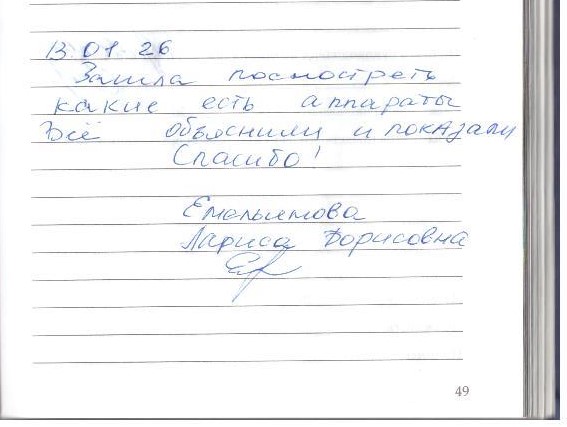 13.01.26
Зашла посмотреть
какие есть аппараты
Всё объяснили и показали
Спасибо!
Емельянова
Лариса Борисовна
49